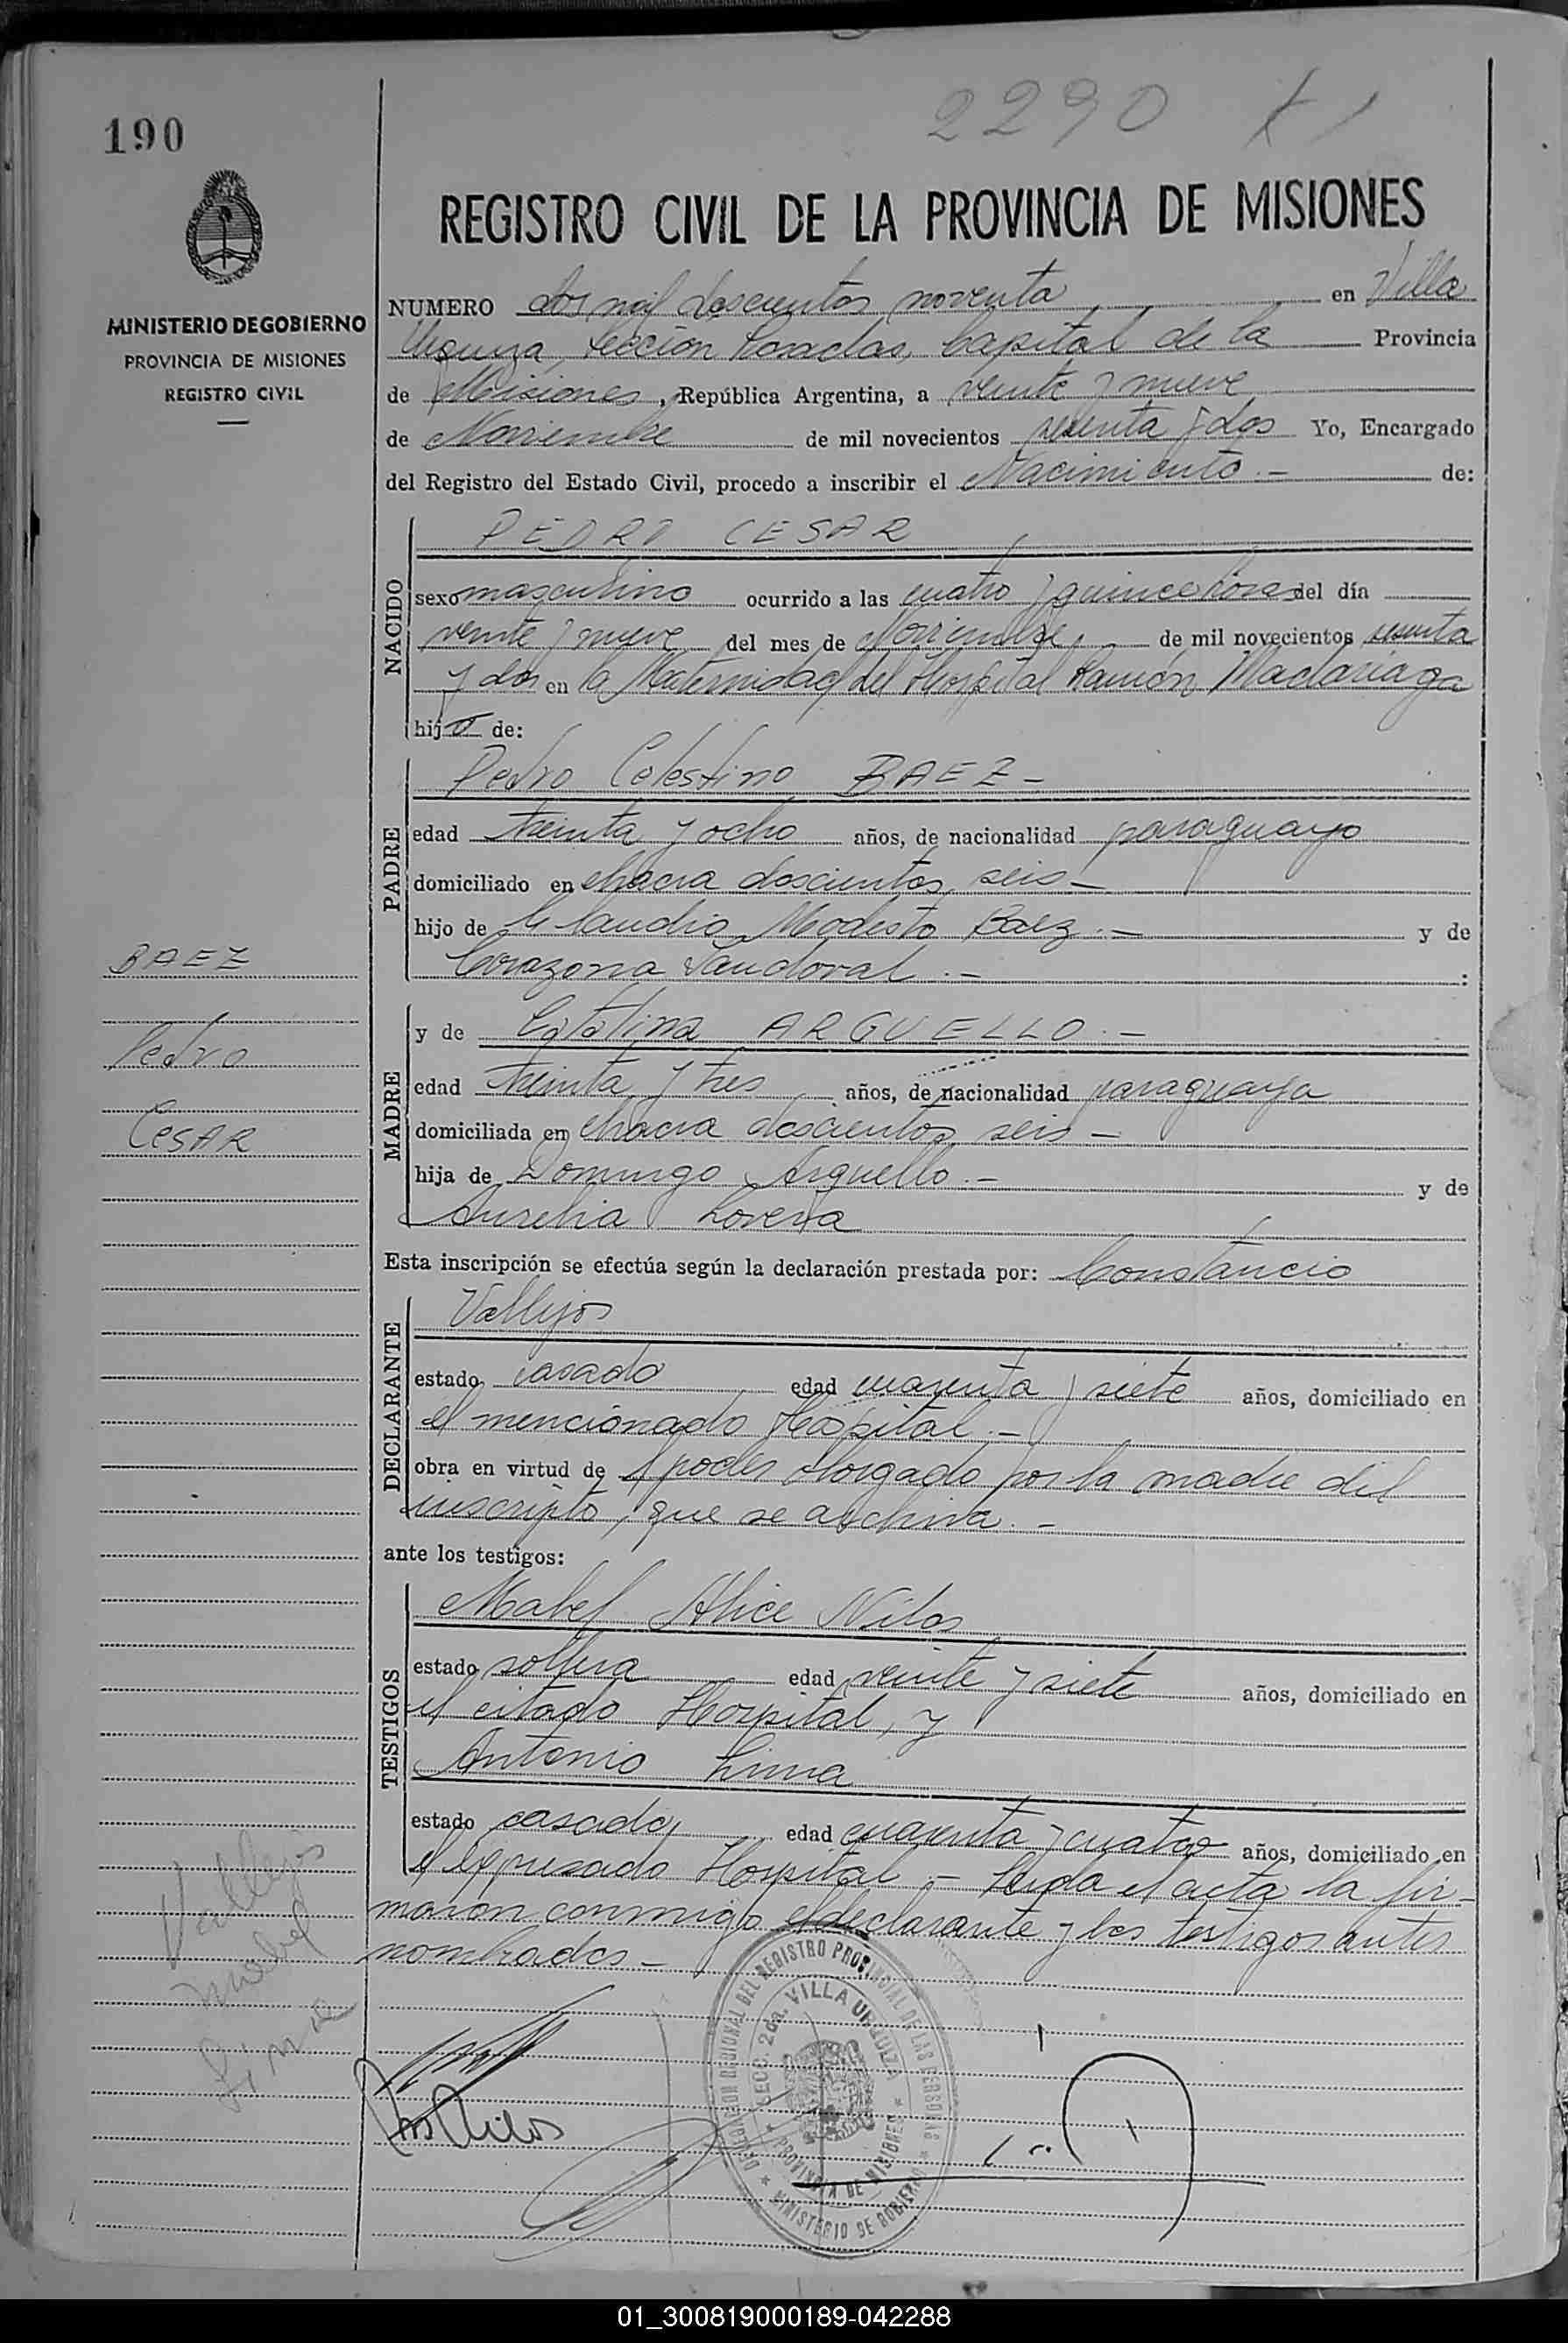 2290
190
REGISTRO CIVIL DE LA PROVINCIA DE MISIONES
MINISTERIO DE GOBIERNO
PROVINCIA DE MISIONES
REGISTRO CIVIL
NUMERO dos mil doscientos noventa en Villa
Urquiza, Sección Posadas, Capital de la Provincia
de Misiones, República Argentina, a veinte y nueve
de Noviembre de mil novecientos sesenta y dos Yo, Encargado
del Registro del Estado Civil, procedo a inscribir el Nacimiento.- de:
NACIDO
PEDRO CESAR
sexo masculino ocurrido a las cuatro y quince horas del día
veinte y nueve del mes de Noviembre, de mil novecientos sesenta
y dos en la Maternidad del Hospital Ramón Madariaga
hijo de:
PADRE
Pedro Celestino BAEZ-
edad treinta y ocho años, de nacionalidad paraguayo
domiciliado en chacra doscientos seis-
hijo de Claudio Modesto Baez.- y de
Corazona Sandoval.- :
BAEZ
Pedro
CESAR
MADRE
y de Catalina ARGUELLO.-
edad treinta y tres años, de nacionalidad paraguaya
domiciliada en chacra doscientos seis-
hija de Domingo Arguello.- y de
Aurelia Lovera
Esta inscripción se efectúa según la declaración prestada por: Constancio
DECLARANTE
Vallejos
estado casado edad cuarenta y siete años, domiciliado en
el mencionado Hospital.-
obra en virtud de poder otorgado por la madre del
inscripto, que se archiva.-
ante los testigos:
TESTIGOS
Mabel Alice Nilos
estado soltera edad veinte y siete años, domiciliado en
el citado Hospital, y
Antonio Lima
estado casado, edad cuarenta y cuatro años, domiciliado en
el expresado Hospital.- Leida el acta la fir-
maron conmigo el declarante y los testigos antes
nombrados-
Vallejos
Mabel
Lima
DELEGACION REGIONAL DEL REGISTRO PROVINCIAL DE LAS PERSONAS
SECC. 2da. VILLA URQUIZA
PROVINCIA DE MISIONES
MINISTERIO DE GOBIERNO
01_300819000189-042288